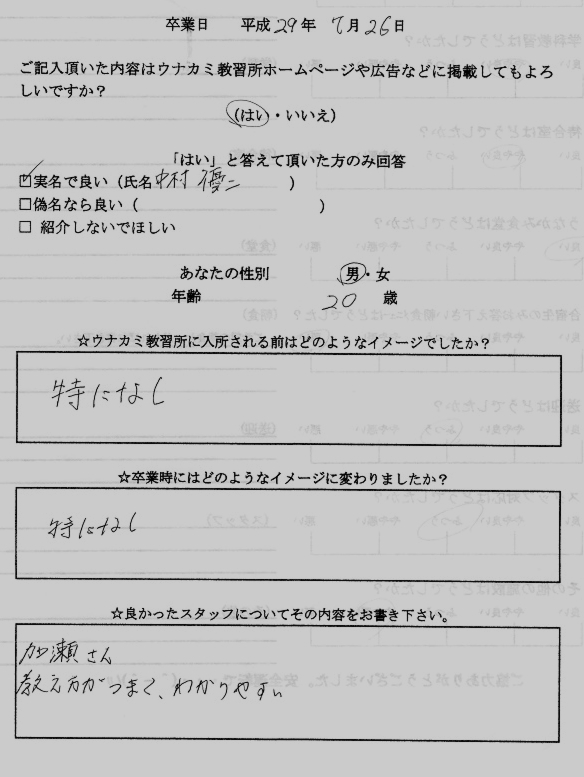 卒業日 平成29年 7月26日
ご記入頂いた内容はウナカミ教習所ホームページや広告などに掲載してもよろ
しいですか？
(はい・いいえ)
「はい」と答えて頂いた方のみ回答
☑実名で良い（氏名 中村 優二 ）
□偽名なら良い（ ）
□ 紹介しないでほしい
あなたの性別 男・女
年齢 20 歳
☆ウナカミ教習所に入所される前はどのようなイメージでしたか？
特になし
☆卒業時にはどのようなイメージに変わりましたか？
特になし
☆良かったスタッフについてその内容をお書き下さい。
加瀬さん
教え方がうまく、わかりやすい